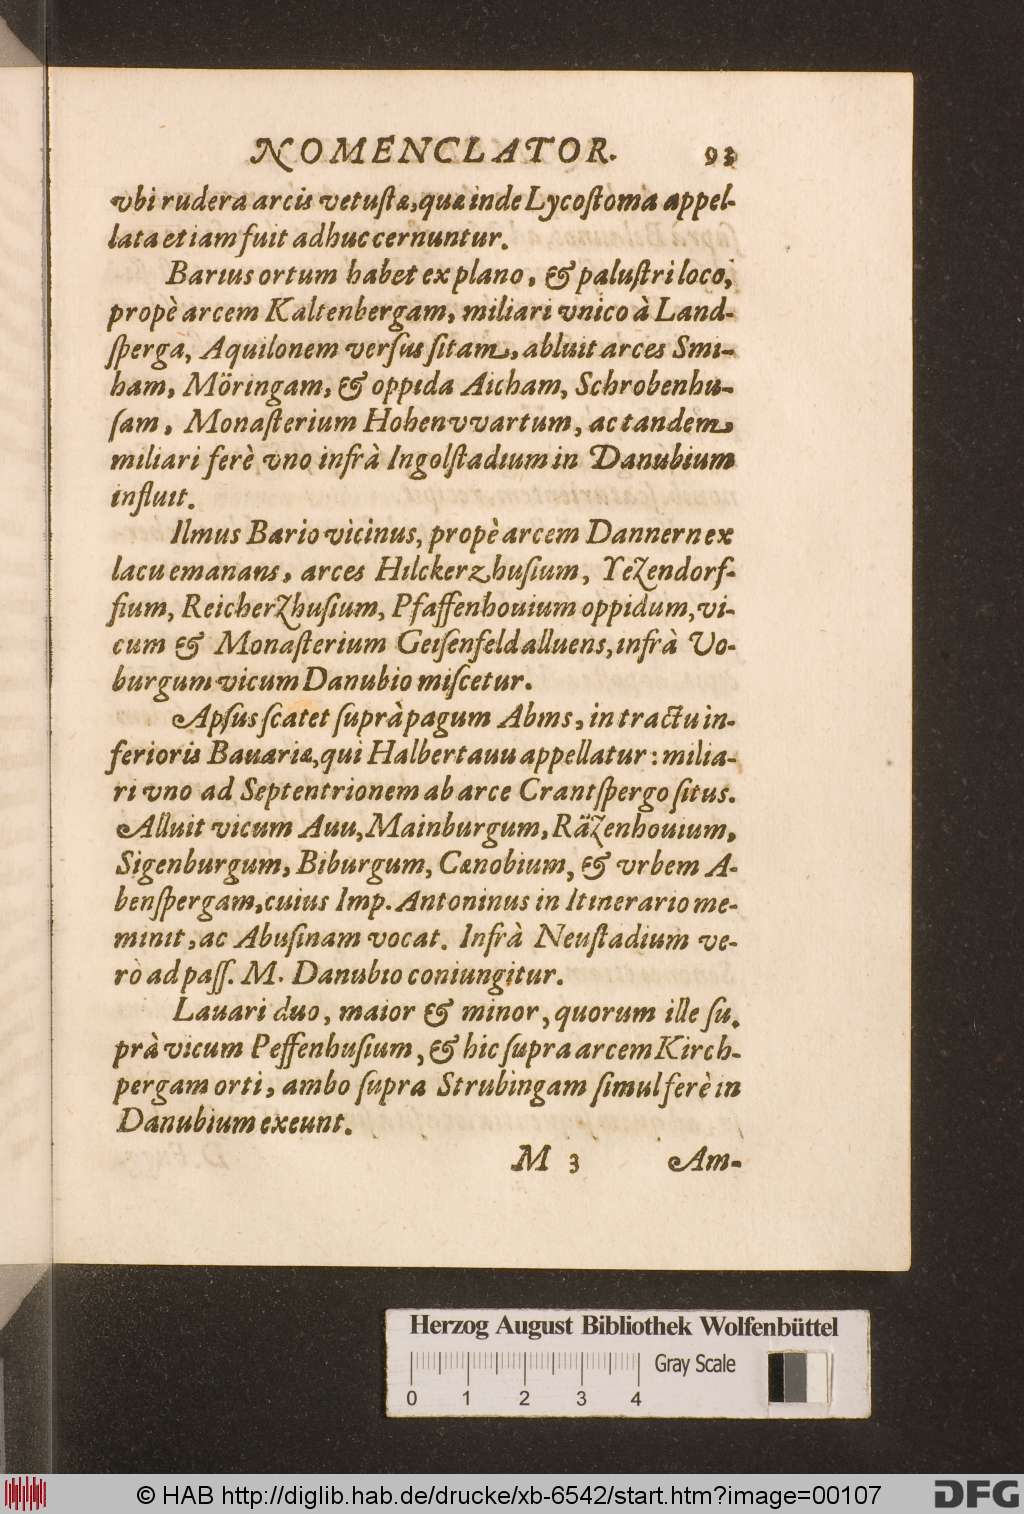 NOMENCLATOR. 93
vbi rudera arcis vetustæ, quæ inde Lycostoma appel-
lata etiam fuit adhuc cernuntur.
Barius ortum habet ex plano, & palustri loco,
propè arcem Kaltenbergam, miliari vnico à Land-
sperga, Aquilonem versus sitam, abluit arces Smi-
ham, Möringam, & oppida Aicham, Schrobenhu-
sam, Monasterium Hohenvvartum, ac tandem
miliari ferè vno infrà Ingolstadium in Danubium
influit.
Ilmus Bario vicinus, propè arcem Dannern ex
lacu emanans, arces Hilckerzhusium, Yezendorf-
fium, Reicherzhusium, Pfaffenhouium oppidum, vi-
cum & Monasterium Geisenfeld alluens, infrà Vo-
burgum vicum Danubio miscetur.
Apsus scatet suprà pagum Abms, in tractu in-
ferioris Bauariæ, qui Halbertauu appellatur: milia-
ri vno ad Septentrionem ab arce Crantspergo situs.
Alluit vicum Auu, Mainburgum, Räzenhouium,
Sigenburgum, Biburgum, Cænobium, & vrbem A-
benspergam, cuius Imp. Antoninus in Itinerario me-
minit, ac Abusinam vocat. Infrà Neustadium ve-
rò ad pass. M. Danubio coniungitur.
Lauari duo, maior & minor, quorum ille su.
prà vicum Peffenhusium, & hic supra arcem Kirch-
pergam orti, ambo supra Strubingam simul ferè in
Danubium exeunt.
M 3 Am-
Herzog August Bibliothek Wolfenbüttel
Gray Scale
0 1 2 3 4
© HAB http://diglib.hab.de/drucke/xb-6542/start.htm?image=00107
DFG